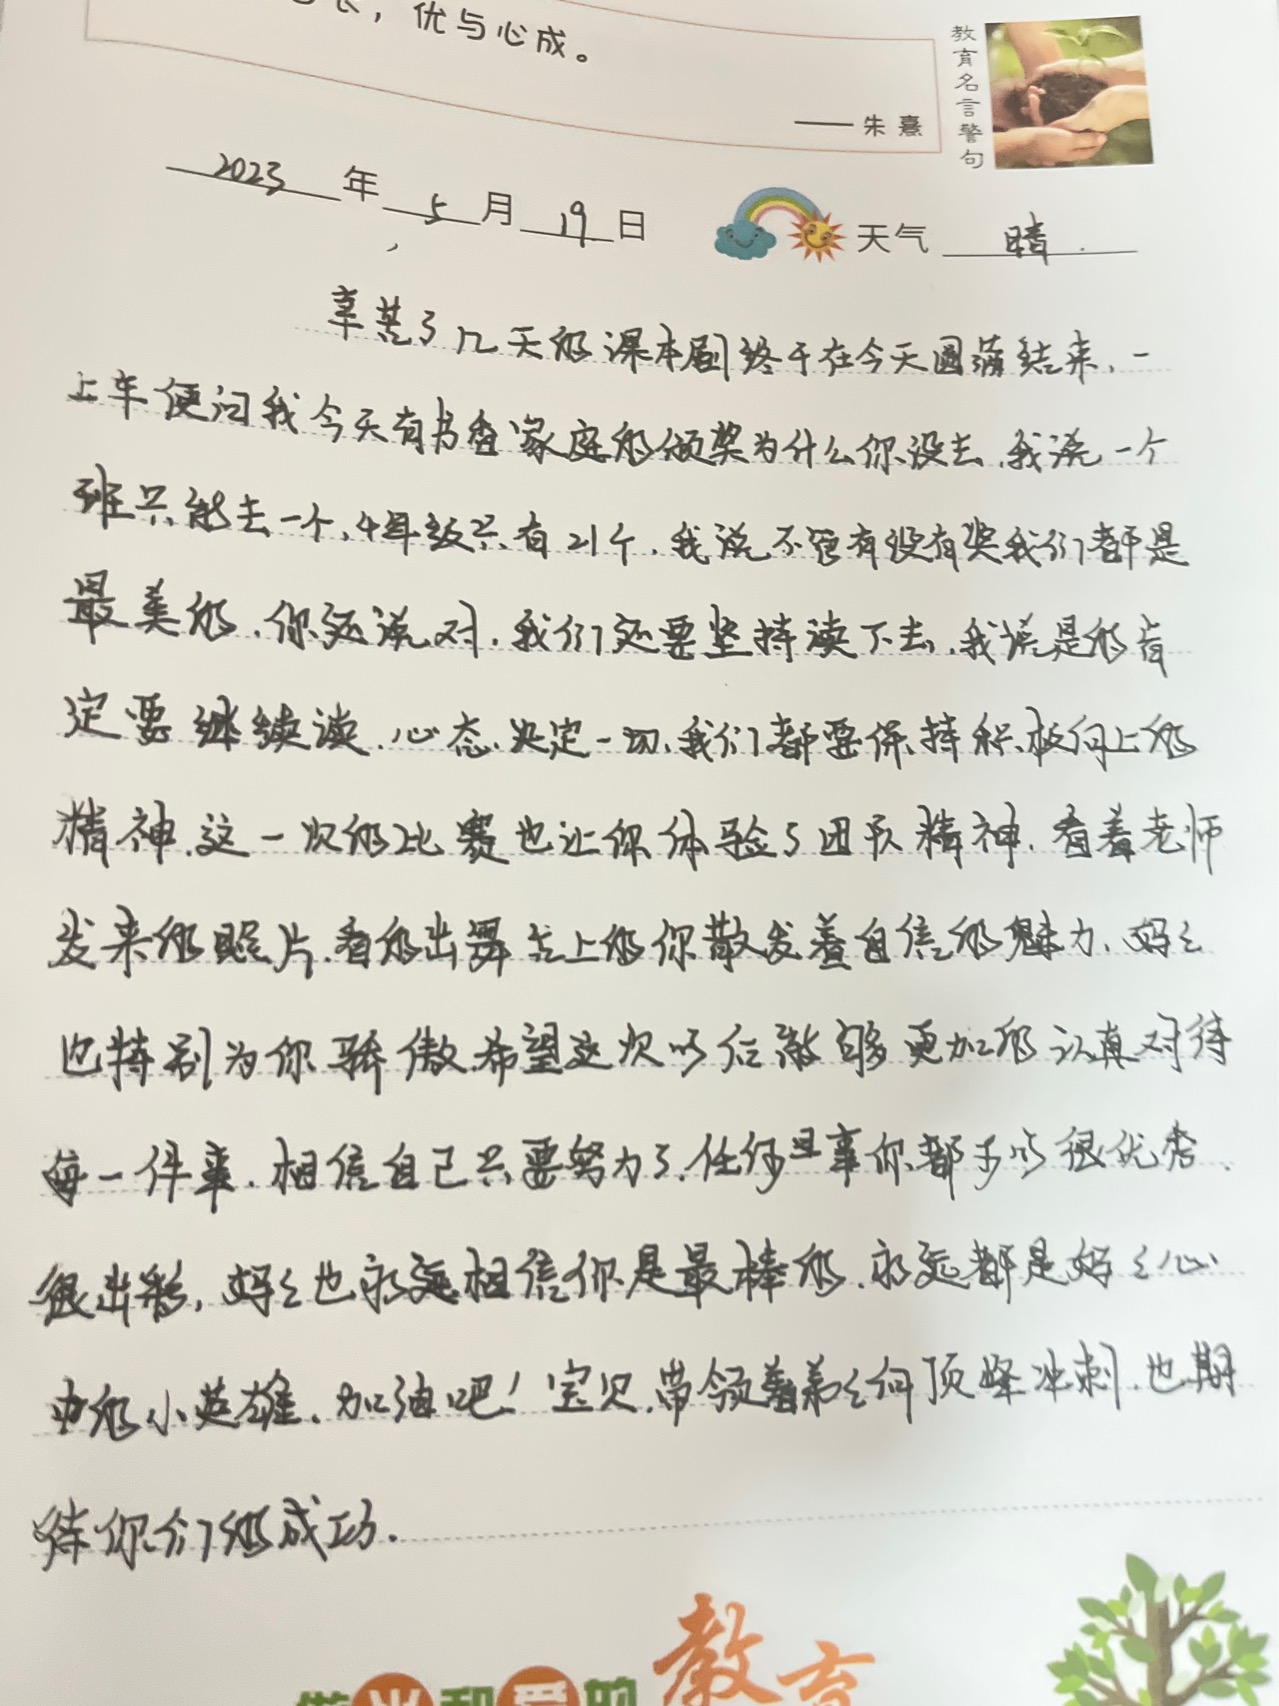 长，优与心成。
——朱熹
教育名言警句
2023年5月19日 天气 晴.
辛苦了几天的课本剧终于在今天圆满结束，一
上车便问我今天有书香家庭的颁奖为什么你没去，我说一个
班只能去一个，4年级只有21个，我说不管有没有奖我们都是
最美的，你还说对，我们还要坚持读下去，我说是的肯
定要继续读，心态决定一切，我们都要保持积极向上的
精神，这一次的比赛也让你体验了团队精神，看着老师
发来的照片，看的出舞台上的你散发着自信的魅力，妈々
也特别为你骄傲，希望这次以后能够更加的认真对待
每一件事，相信自己只要努力了，任何事你都可以很优秀，
很出彩，妈々也永远相信你是最棒的，永远都是妈々心
中的小英雄，加油吧！宝贝，带领着弟々向顶峰冲刺，也期
待你们的成功.
做光和爱的教育